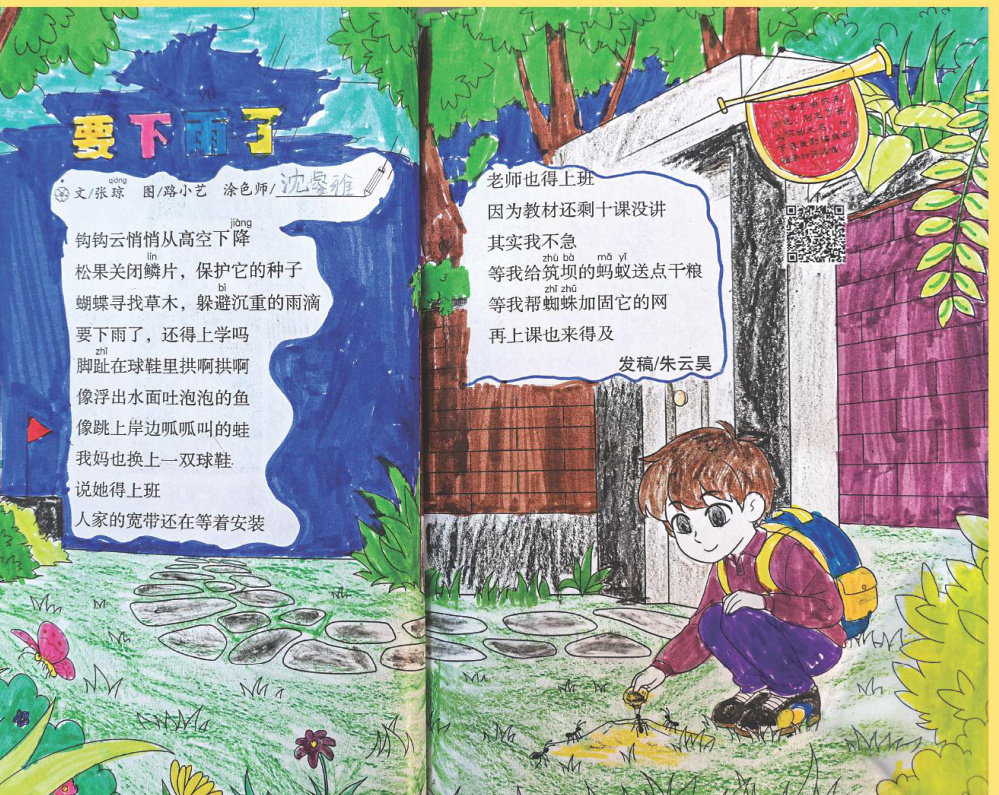 要下雨了
文/张琼 图/路小艺 涂色师/沈睿雅
钩钩云悄悄从高空下降
松果关闭鳞片，保护它的种子
蝴蝶寻找草木，躲避沉重的雨滴
要下雨了，还得上学吗
脚趾在球鞋里拱啊拱啊
像浮出水面吐泡泡的鱼
像跳上岸边呱呱叫的蛙
我妈也换上一双球鞋
说她得上班
人家的宽带还在等着安装
老师也得上班
因为教材还剩十课没讲
其实我不急
等我给筑坝的蚂蚁送点干粮
等我帮蜘蛛加固它的网
再上课也来得及
发稿/朱云昊